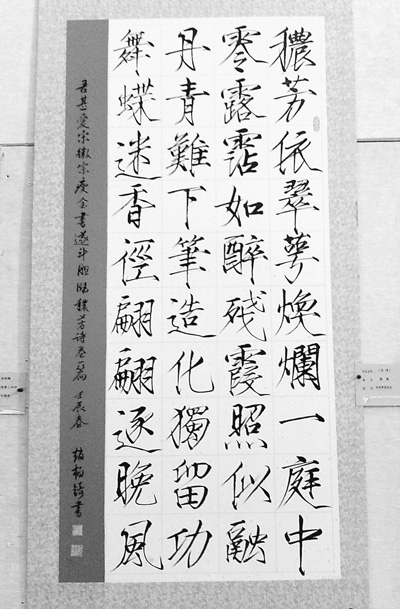 穠芳依翠萼煥爛一庭中
零露霑如醉殘霞照似融
丹青難下筆造化獨留功
舞蝶迷香徑翩翩逐晚風
吾甚愛宋徽宗瘦金書遂斗膽臨穠芳詩卷一篇 壬辰春 書